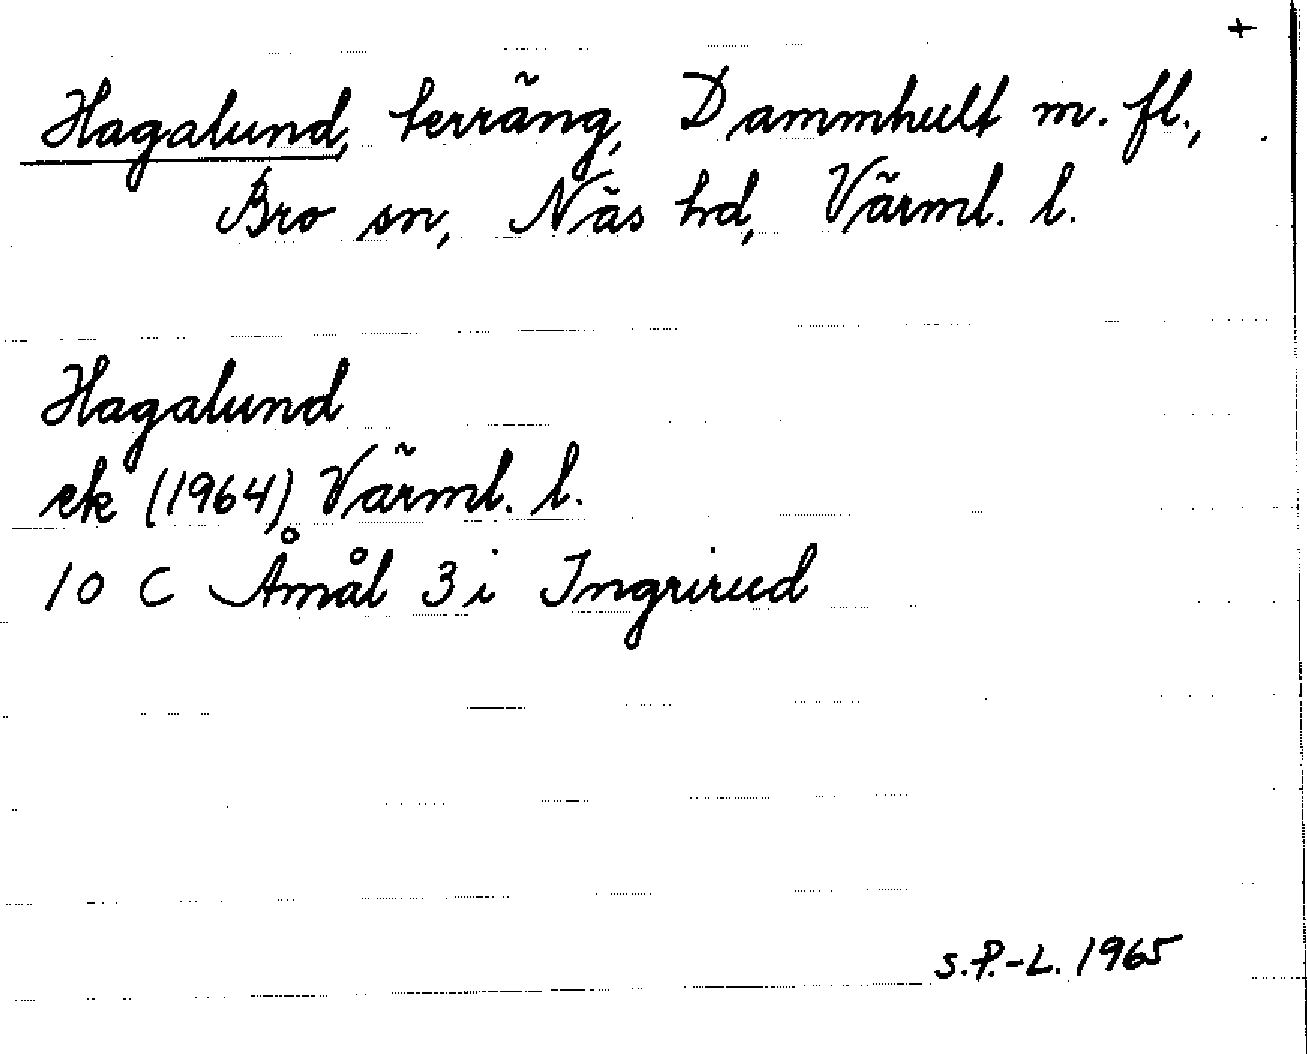 +
Hagalund, terräng, Dammhult m. fl.,
Bro sn, Näs hd, Värml. l.
Hagalund
ek (1964) Värml. l.
10 C Åmål 3 i Ingrirud
S.P.-L. 1965